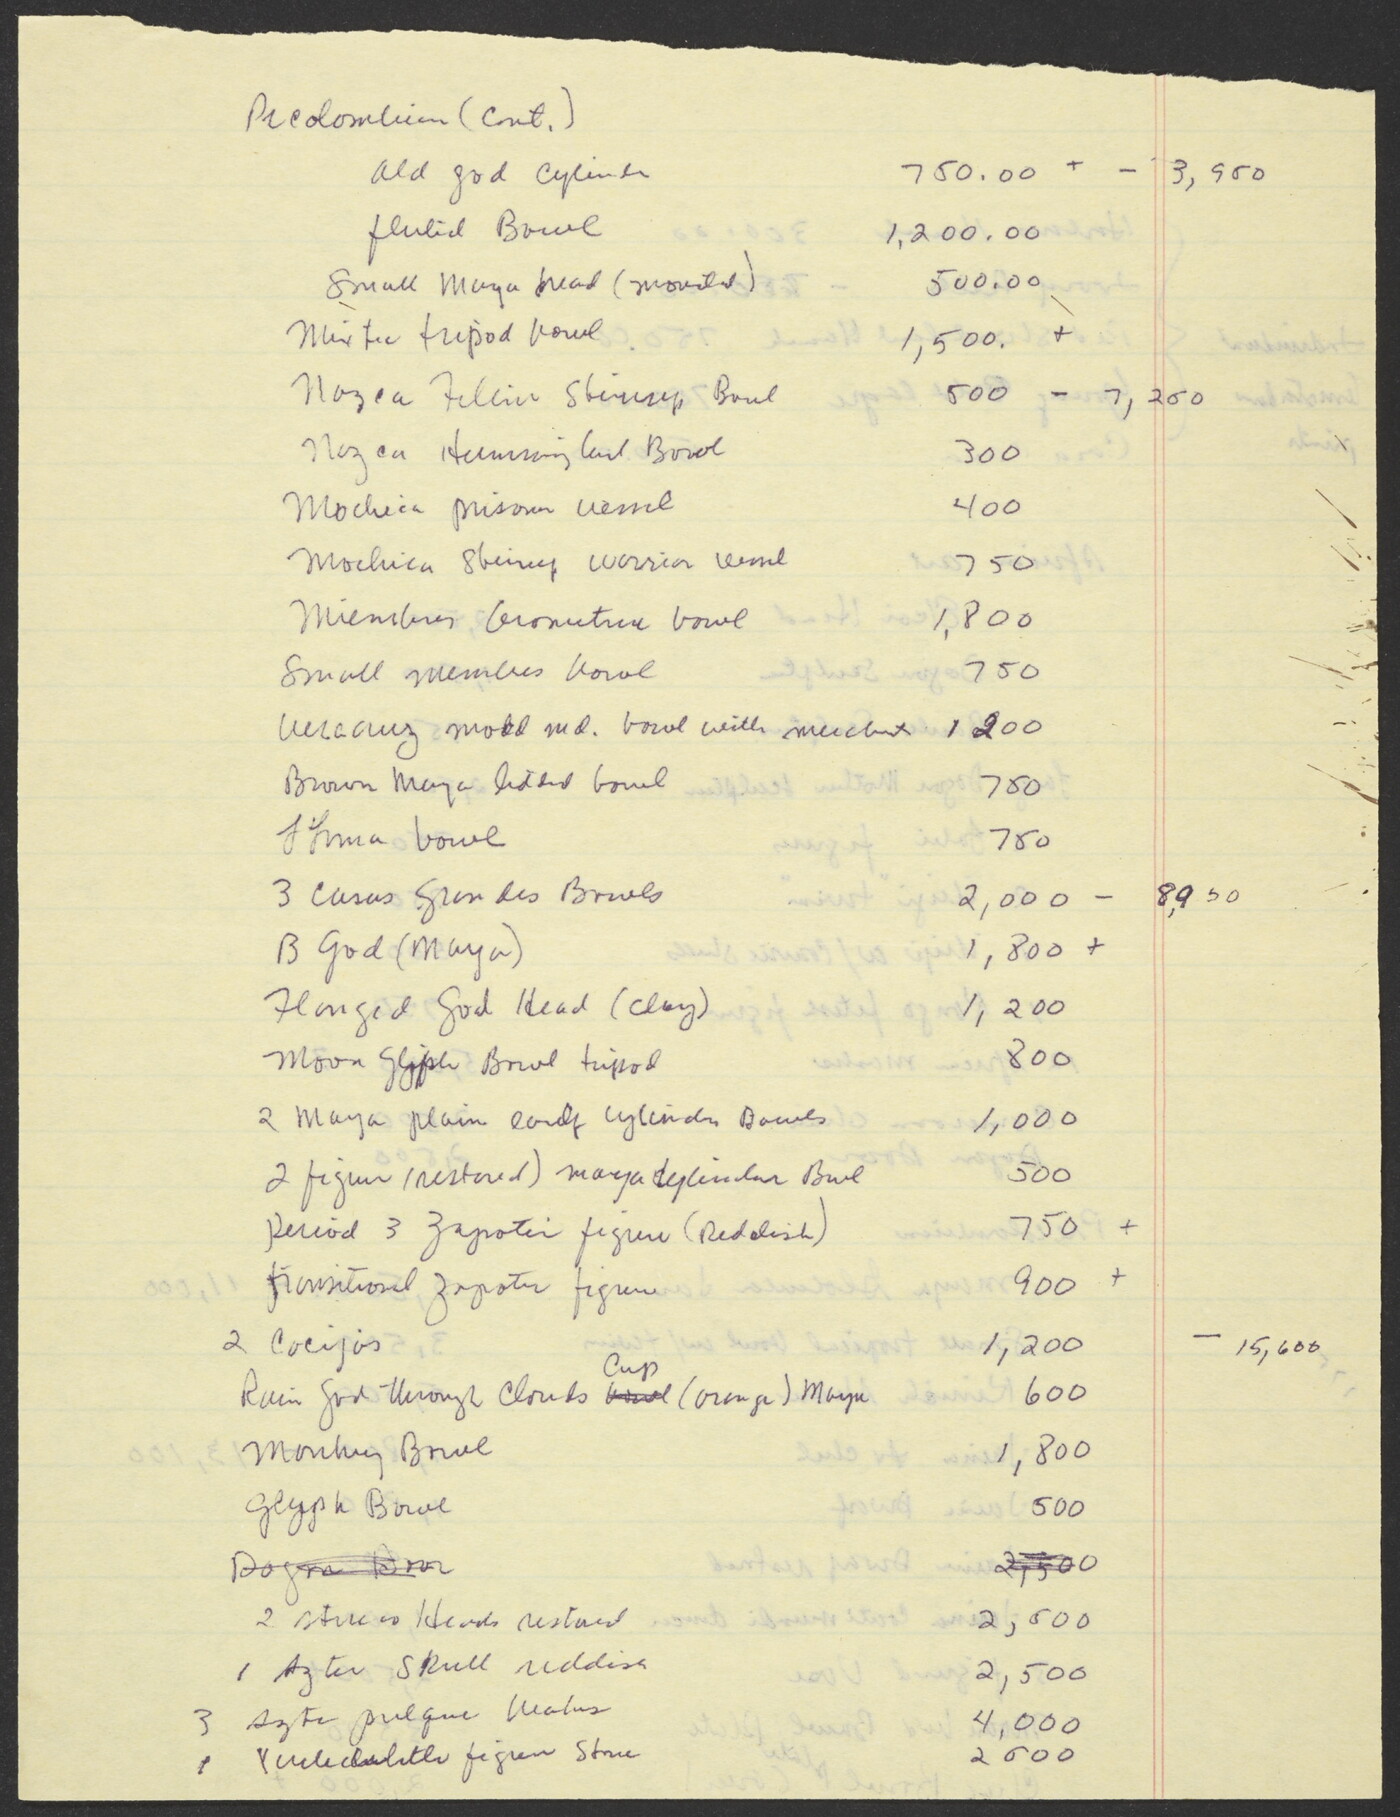 Precolombian (Cont.)
Old god Cylinder 750.00 + - 3,950
fluted Bowl 1,200.00
Small Maya head (mounted) 500.00
Mixtec tripod bowl 1,500. +
Nazca Feline Stirrup Bowl 500 - 7,250
Nazca Hummingbird Bowl 300
Mochica prisoner vessel 400
Mochica Stirrup warrior vessel 750
Miembres Geometric bowl 1,800
Small membres bowl 750
Veracruz mold md. bowl with merchant 1200
Brown Maya lidded bowl 750
bowl 750
3 Casas Grandes Bowls 2,000 - 8,950
B God (Maya) 1,800 +
Flanged God Head (clay) 1,200
Moon Glyph Bowl tripod 800
2 Maya plain early cylinder Bowls 1,000
2 figure (restored) maya cylinder Bowl 500
Period 3 Zapotec figure (Reddish) 750 +
transitional Zapotec figure 900 +
2 Cocijos 1,200 - 15,600
Cup
Rain God through Clouds bowl (orange) Maya 600
Monkey Bowl 1,800
Glyph Bowl 500
Dogon Door 2,500
2 stucco Heads restored 2,500
1 Aztec Skull reddish 2,500
3 Aztec pulque 4,000
1 figure Stone 2500